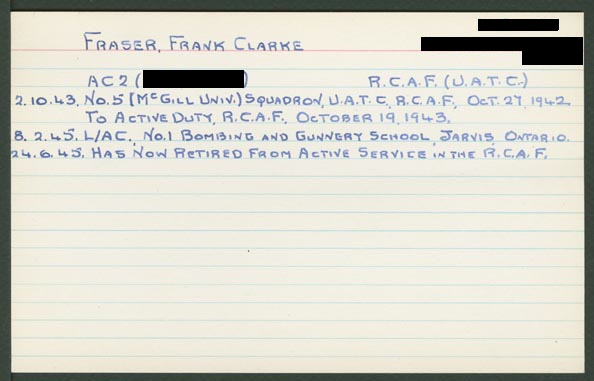 FRASER, FRANK CLARKE
AC2 ( ) R.C.A.F. (U.A.T.C.)
2.10.43. No.5 (McGILL UNIV.) SQUADRON, U.A.T.C., R.C.A.F., OCT. 27, 1942.
TO ACTIVE DUTY, R.C.A.F., OCTOBER 19, 1943.
8.2.45. L/AC., No.1 BOMBING AND GUNNERY SCHOOL, JARVIS, ONTARIO.
24.6.45. HAS NOW RETIRED FROM ACTIVE SERVICE IN THE R.C.A.F.